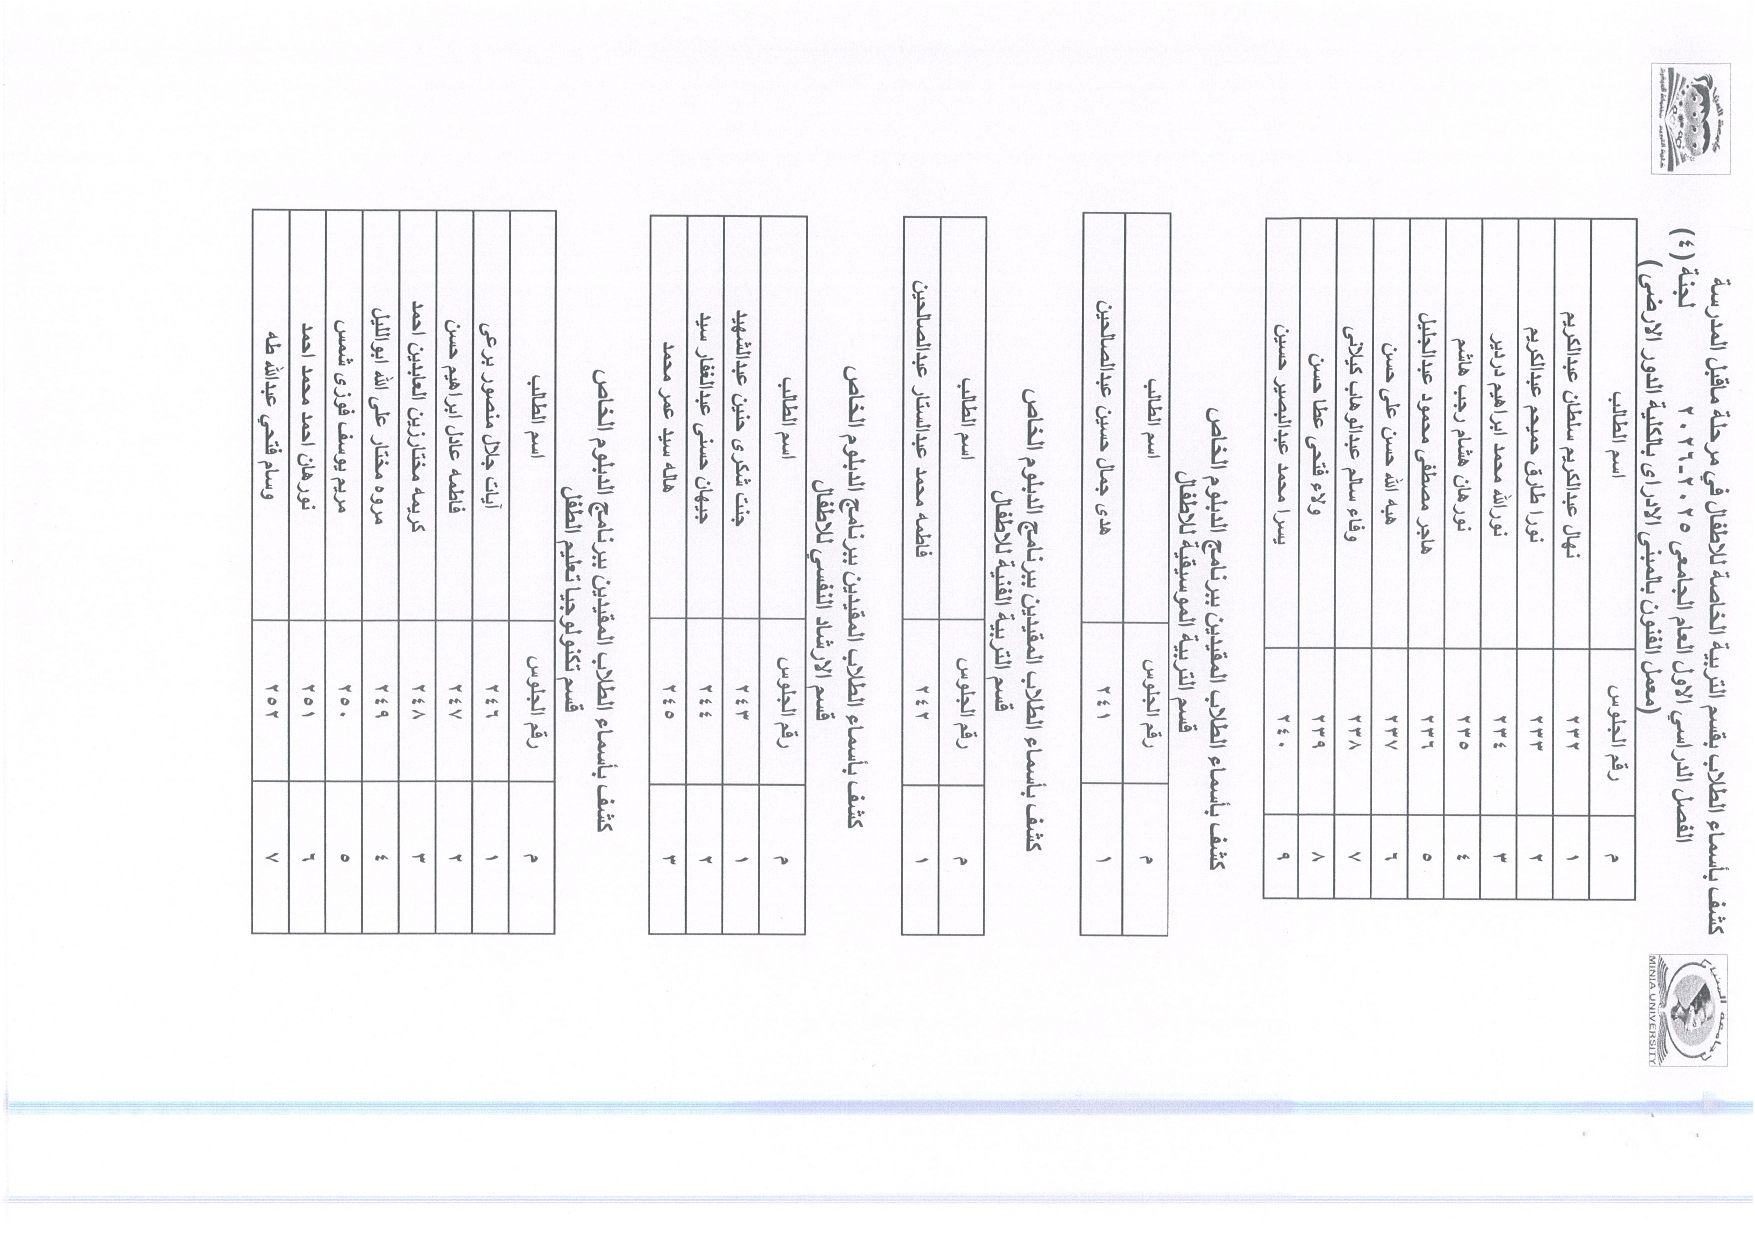 كشف بأسماء الطلاب بقسم التربية الخاصة للاطفال في مرحلة ماقبل المدرسة
الفصل الدراسي الاول العام الجامعى ٢٠٢٥-٢٠٢٦ لجنة (٤)
(معمل الفنون بالمبنى الادراى بالكلية الدور الارضى)
MINIA UNIVERSITY
م رقم الجلوس اسم الطالب
١ ٢٣٢ نهال عبدالكريم سلطان عبدالكريم
٢ ٢٣٣ نورا طارق حميحم عبدالكريم
٣ ٢٣٤ نورالله محمد ابراهيم دردير
٤ ٢٣٥ نورهان هشام رجب هاشم
٥ ٢٣٦ هاجر مصطفى محمود عبدالجليل
٦ ٢٣٧ هبه الله حسن على حسن
٧ ٢٣٨ وفاء سالم عبدالوهاب كيلانى
٨ ٢٣٩ ولاء فتحى عطا حسن
٩ ٢٤٠ يسرا محمد عبدالبصير حسين
كشف بأسماء الطلاب المقيدين ببرنامج الدبلوم الخاص
قسم التربية الموسيقية للاطفال
م رقم الجلوس اسم الطالب
١ ٢٤١ هدى جمال حسين عبدالصالحين
كشف بأسماء الطلاب المقيدين ببرنامج الدبلوم الخاص
قسم التربية الفنية للاطفال
م رقم الجلوس اسم الطالب
١ ٢٤٢ فاطمه محمد عبدالستار عبدالصالحين
كشف بأسماء الطلاب المقيدين ببرنامج الدبلوم الخاص
قسم الارشاد النفسي للاطفال
م رقم الجلوس اسم الطالب
١ ٢٤٣ جنت شكرى حنين عبدالشهيد
٢ ٢٤٤ جيهان حسنى عبدالغفار سيد
٣ ٢٤٥ هاله سيد عمر محمد
كشف بأسماء الطلاب المقيدين ببرنامج الدبلوم الخاص
قسم تكنولوجيا تعليم الطفل
م رقم الجلوس اسم الطالب
١ ٢٤٦ آيات جلال منصور برعى
٢ ٢٤٧ فاطمه عادل ابراهيم حسن
٣ ٢٤٨ كريمه مختارزين العابدين احمد
٤ ٢٤٩ مروه مختار على الله ابوالليل
٥ ٢٥٠ مريم يوسف فوزى شمس
٦ ٢٥١ نورهان احمد محمد احمد
٧ ٢٥٢ وسام فتحي عبدالله طه